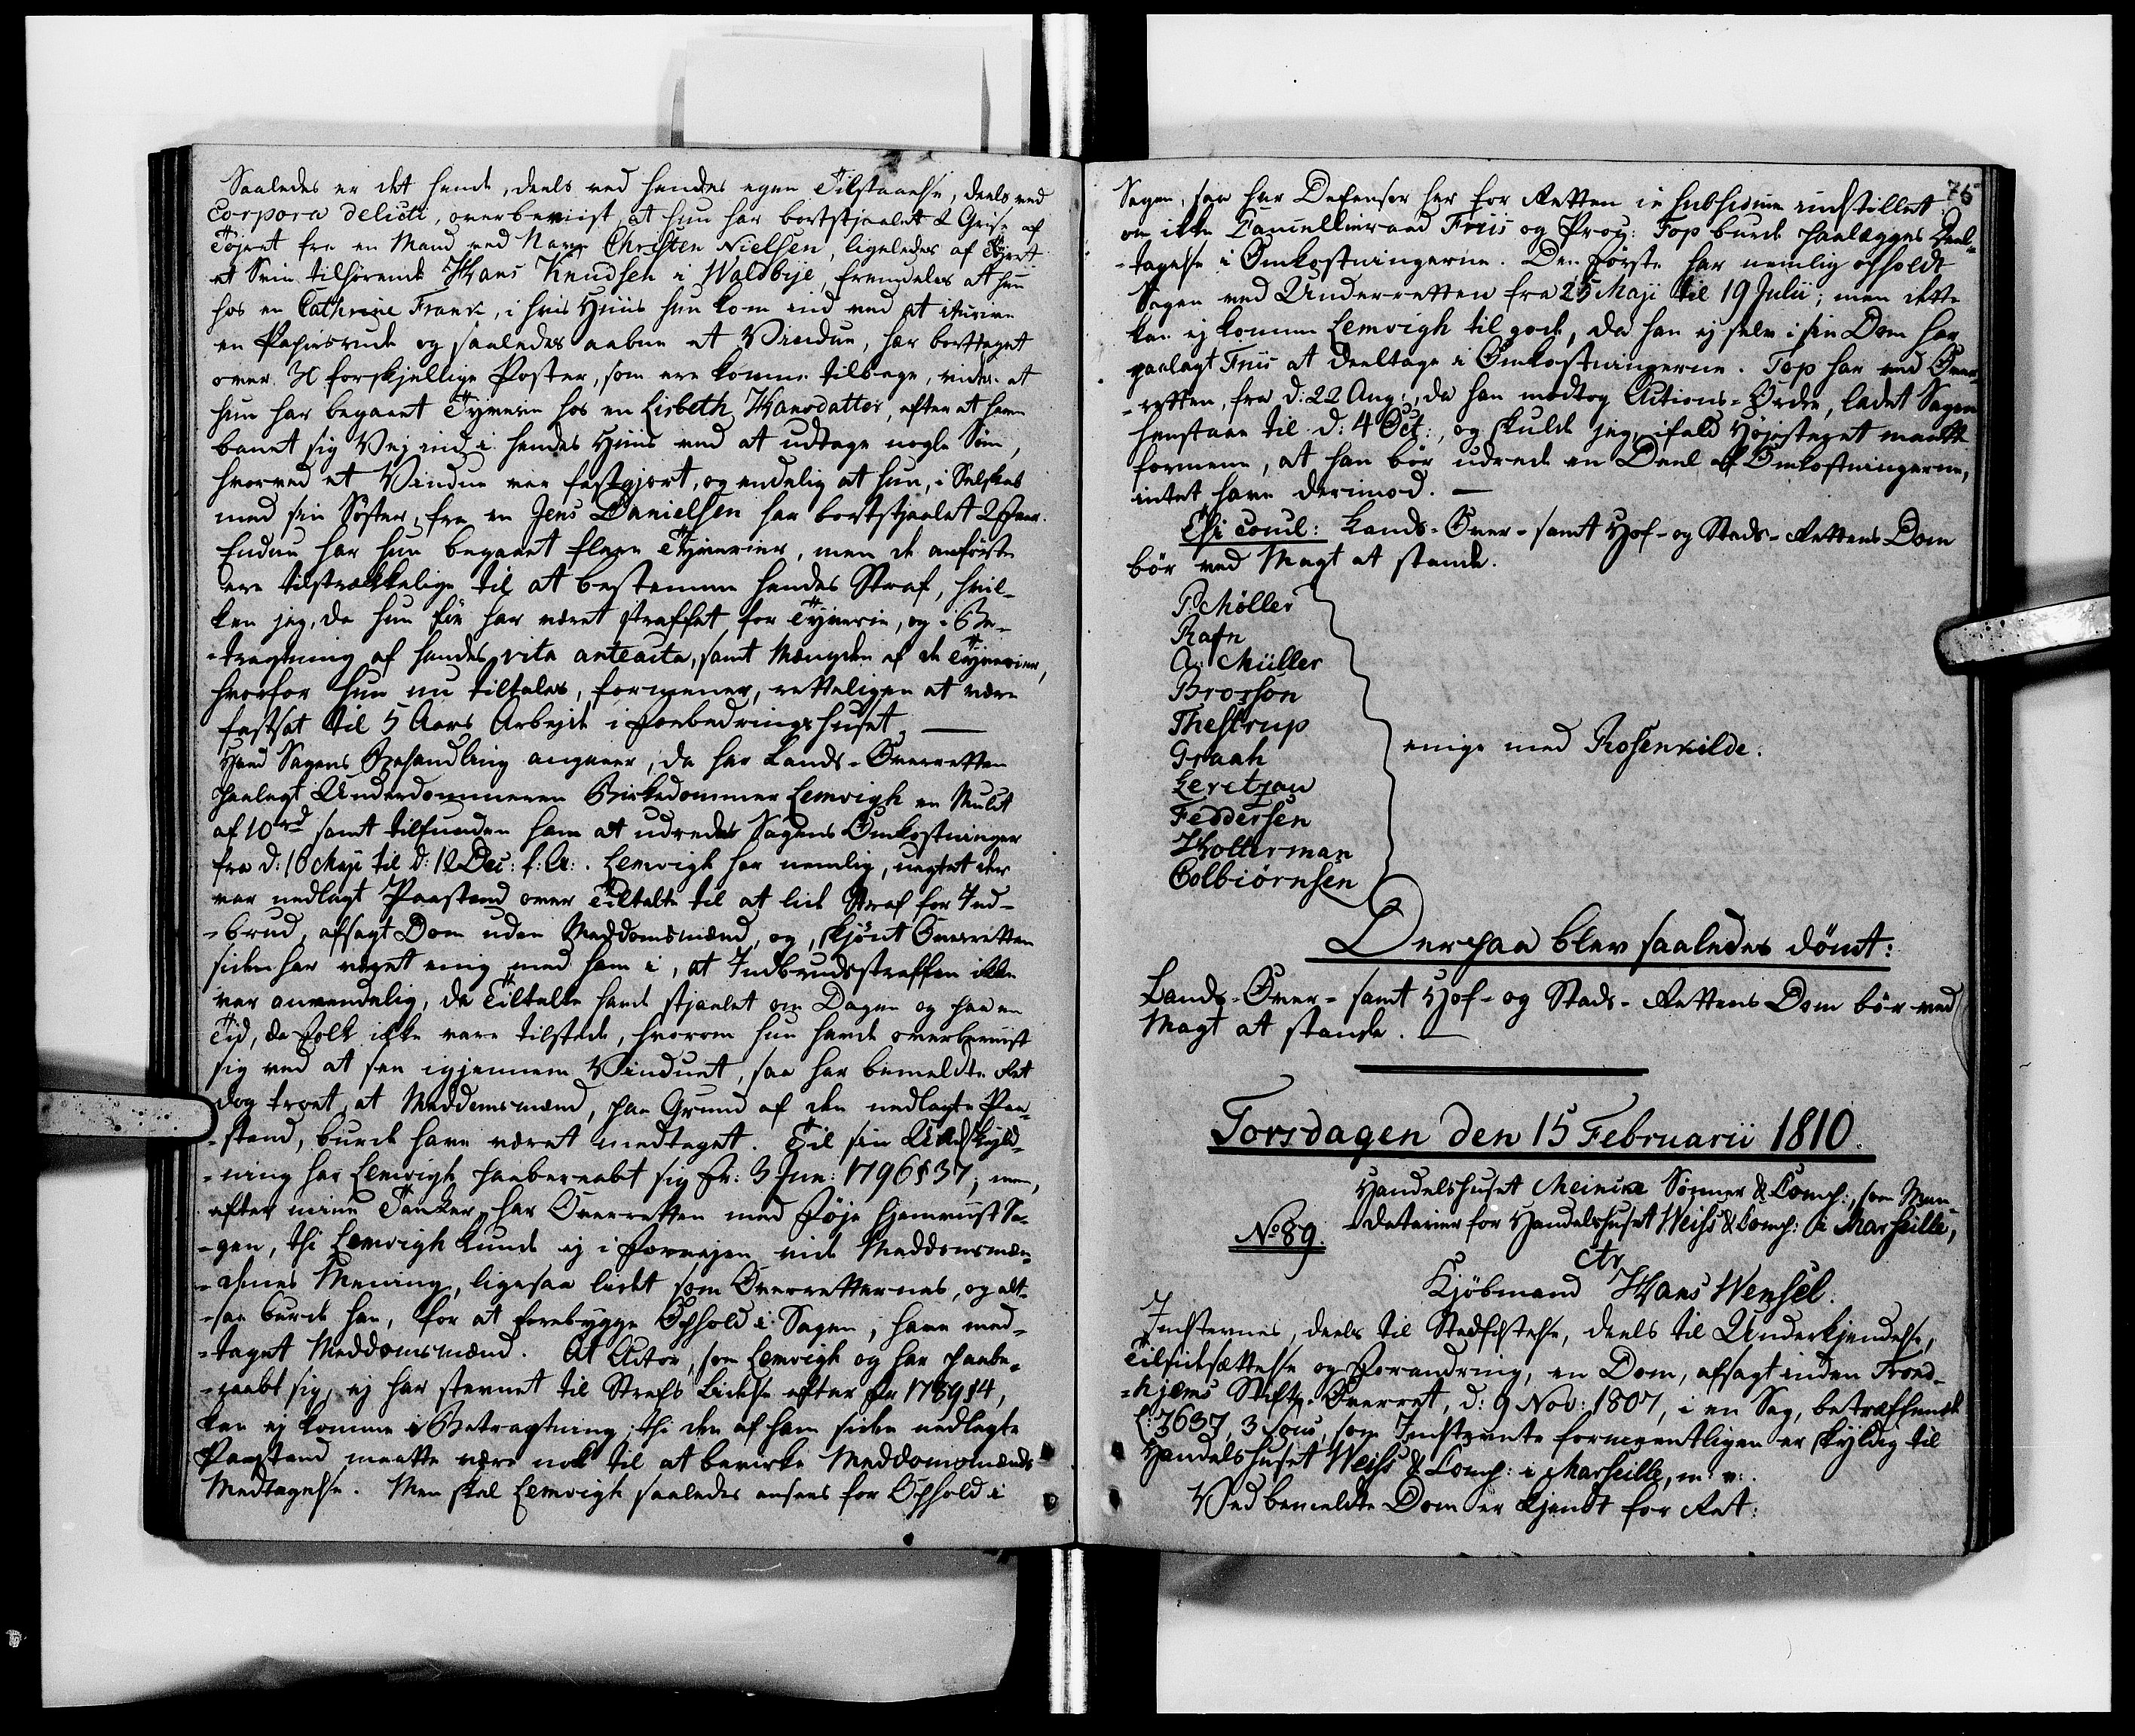 Saaledes er det hende, deels ved hendes egen Tilstaaelse, deels ved
corpora delicti, overbeviist, at hun har bortstjaalet 2 Grise af
Tøjret fra en Mand ved Navn Christen Nielsen, ligeledes af Tøjret
et Sviin tilhørende Hans Knudsen i Waldbye, fremdeles at hun
hos en Cathrine Franck, i hvis Huus hun kom ind ved at
en Papiirsrude og saaledes aabne et Vindue, har borttaget
over 30 forskjellige Poster, som ere komne tilbage, videre at
hun har begaaet Tyverie hos en Lisbeth Hansdatter, efter at have
banet sig Vej ind i hendes Huus ved at udtage nogle Søm,
hvorved et Vindue var fastgjort, og endelig at hun, i Selskab
med sin Søster, fra en Jens Danielsen har bortstjaalet 2 Faar.
Endnu har hun begaaet flere Tyverier, men de anførte
ere tilstrækkelige til at bestemme hendes Straf, hvil-
ken jeg, da hun før har været straffet for Tyverie, og i Be-
-tragtning af hendes vita anteacta, samt Mængden af de Tyverier,
hvorfor hun nu tiltales, formener, retteligen at være
fastsat til 5 Aars Arbejde i Forbedringshuset. —
Hvad Sagens Behandling angaaer, da har Lands-Overretten
paalagt Underdommeren Birkedommer Lemvigh en Mulct
af 10 rd samt tilfunden ham at udrede Sagens Omkostninger
fra d: 16 Maji til d: 12 Dec: f: A: . Lemvigh har nemlig, uagtet der
var nedlagt Paastand over Tiltalte til at lide Straf for Ind-
-brud, afsagt Dom uden Meddomsmænd, og, skjønt Overretten
siden har været enig med ham i, at Indbrudsstraffen ikke
var anvendelig, da Tiltalte havde stjaalet om Dagen og paa en
Tid, da Folk ikke vare tilstede, hvorom hun havde overbeviist
sig ved at see igjennem Vinduet, saa har bemeldte Ret
dog troet, at Meddomsmænd, paa Grund af den nedlagte Paa-
-stand, burde have været medtaget. Til sin Undskyld-
-ning har Lemvigh paaberaabt sig Fr: 3 Jun: 1796 § 37; men,
efter mine Tanker, har Overretten med Føje hjemviist Sa-
-gen, thi Lemvigh kunde ej i Forvejen vide Meddomsmæn-
-denes Mening, ligesaa lidet som Overretternes, og alt-
-saa burde han, for at forebygge Ophold i Sagen, have med-
-taget Meddomsmænd. At Actor, som Lemvigh og har paabe-
-raabt sig, ej har stevnet til Strafs Lidelse efter Fr 1789 § 4,
kan ej komme i Betragtning; thi den af ham siden nedlagte
Paastand maatte være nok til at bevirke Meddomsmænds
Medtagelse. Men skal Lemvigh saaledes ansees for Ophold i
75
Sagen, saa har Defensor her for Retten in subsidium indstillet
om ikke Cancellieraad Friis og Proc: Top burde paalægges Deel-
-tagelse i Omkostningerne. Den Første har nemlig opholdt
Sagen ved Underretten fra 25 Maji til 19 Julii; men dette
kan ej komme Lemvigh til gode, da han ej selv i sin Dom har
paalagt Friis at deeltage i Omkostningerne. Top har ved Over-
-retten, fra d: 22 Aug:, da han modtog Actions-Ordre, ladet Sagen
henstaae til d: 4 Oct:, og skulde jeg, ifald Højstæret maatte
formene, at han bør udrede en Deel af Omkostningerne,
intet have derimod. —
Thi concl: Lands-Over- samt Hof- og Stads-Rettens Dom
bør ved Magt at stande.
P. Møller
Rafn
A: Müller
Brorson
Thestrup
Graah
Zeretzau
Feddersen
Kolterman
Colbiørnsen
enige med Rosenkilde.
Derpaa blev saaledes dömt:
Lands-Over- samt Hof- og Stads-Rettens Dom bør ved
Magt at stande. —
Torsdagen den 15 Februarii 1810.
Handelshuset Meincke Sønner & Comp:, som Man-
No 89. -datarier for Handelshuset Weiss & Comp: i Marseille,
ctr
Kjöbmand Hans Wensel.
Indstevnes, deels til Stadfæstelse, deels til Underkjendelse,
Tilsidesættelse og Forandring, en Dom, afsagt inden Trond-
-hjems Stifts-Overret, d: 9 Nov: 1807, i en Sag, betræffende
£: 7637, 3 sous, som Indstevnte formeentligen er skyldig til
Handelshuset Weiss & Comp: i Marseille, m: v: .
Ved bemeldte Dom er kjendt for Ret: